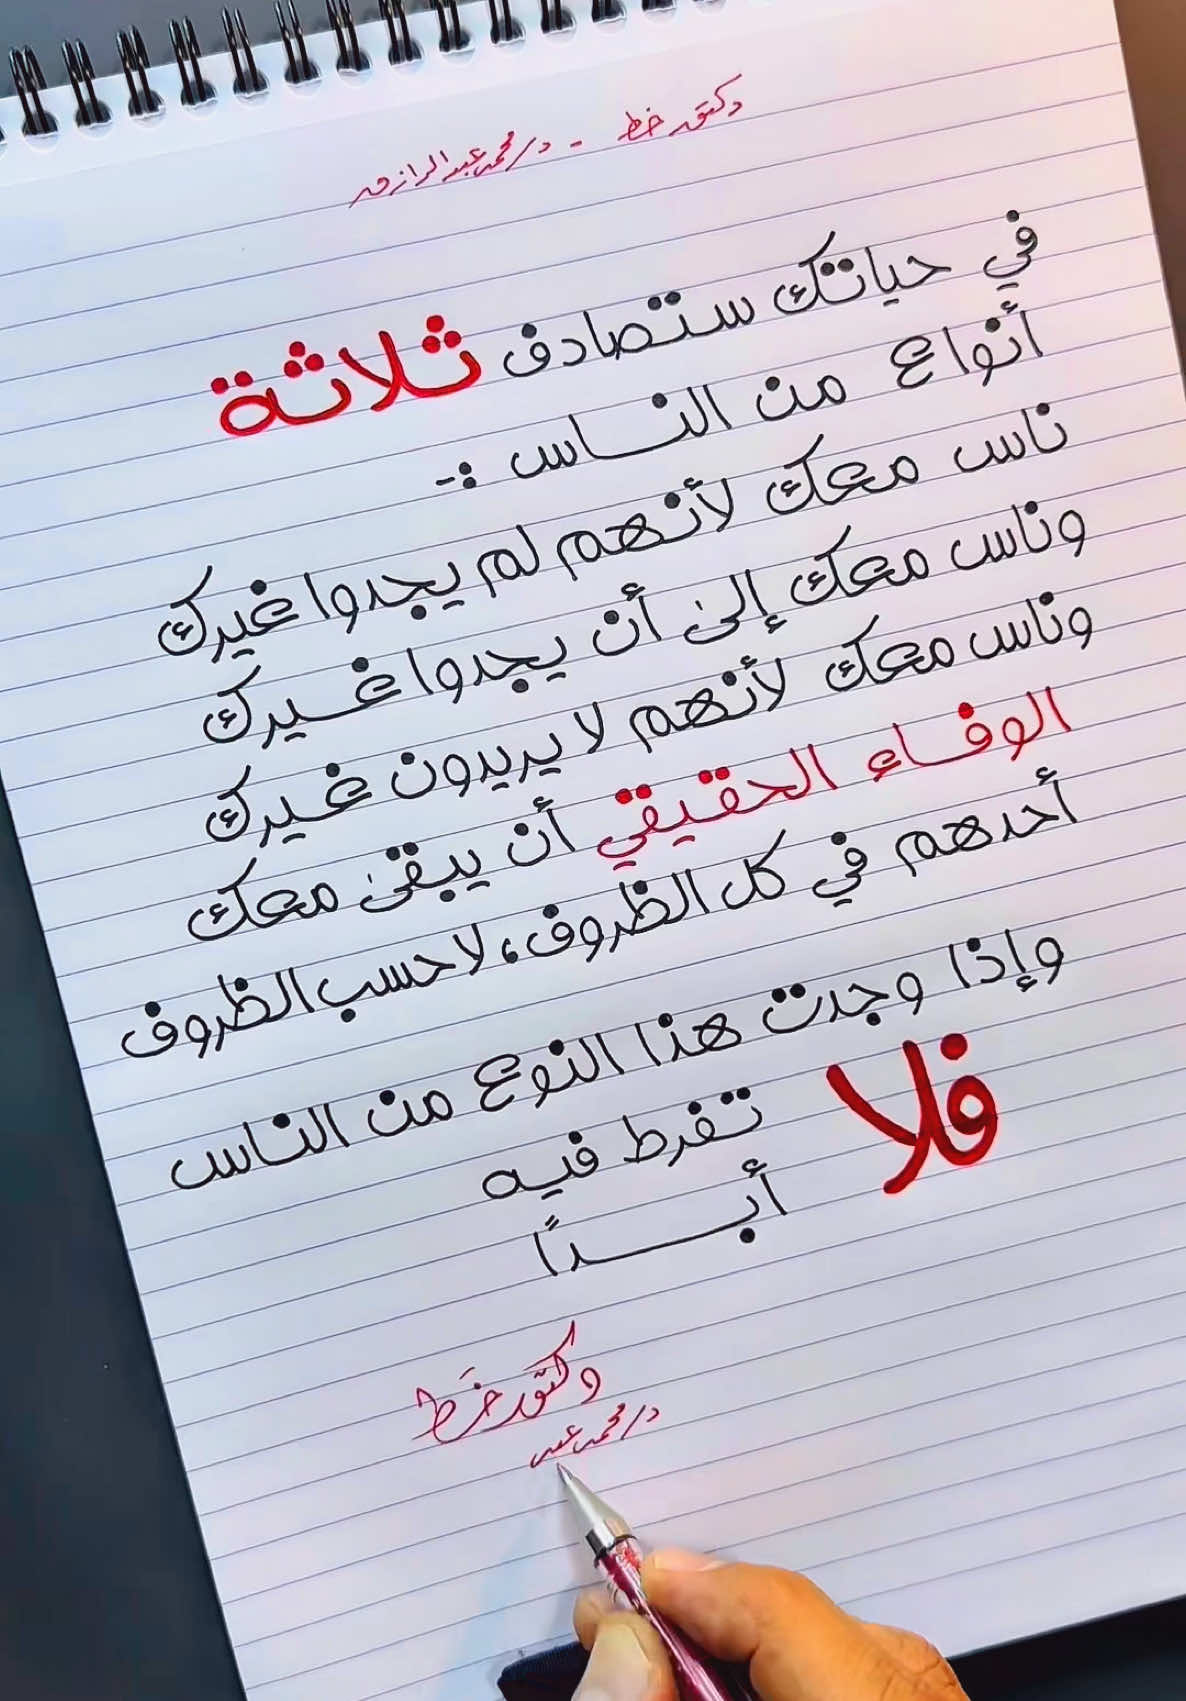 دكتور خط - د/ محمد عبد الرازق
في حياتك ستصادف ثلاثة
أنواع من الناس :-
ناس معك لأنهم لم يجدوا غيرك
وناس معك إلى أن يجدوا غيرك
وناس معك لأنهم لا يريدون غيرك
الوفاء الحقيقي أن يبقى معك
أحدهم في كل الظروف، لا حسب الظروف
وإذا وجدت هذا النوع من الناس
فلا تفرط فيه
أبــدًا
دكتور خط
د/ محمد عبد